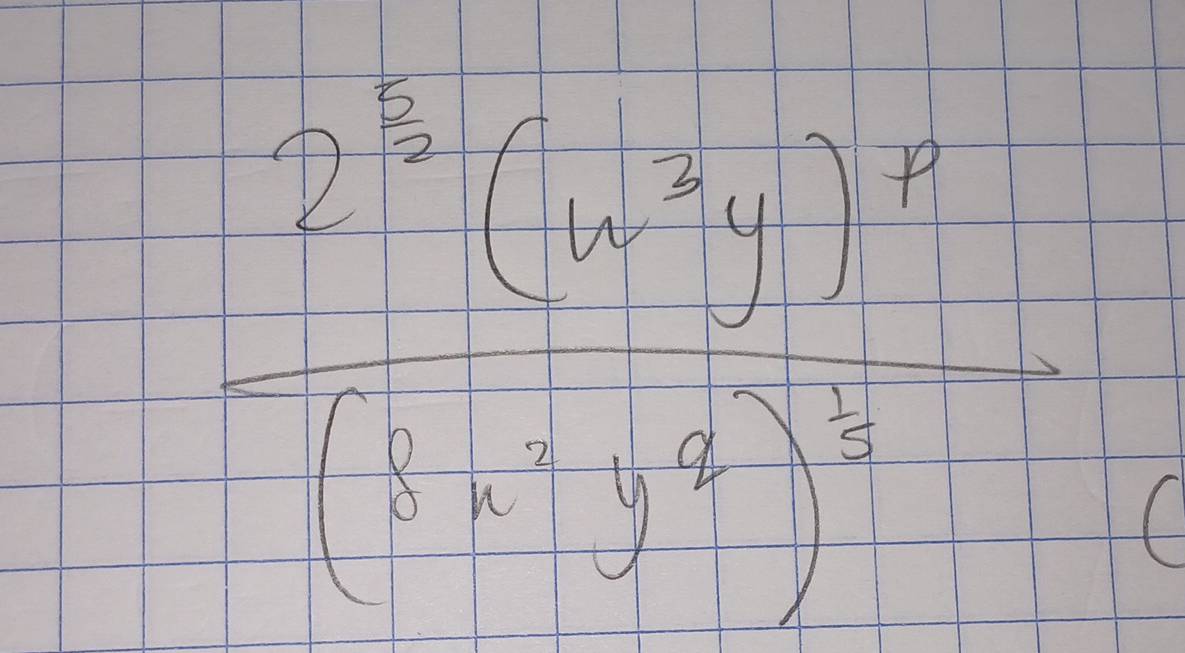 2^(5/2) (n^3 y)^p
(8 n^2 y^q)^(1/5) (